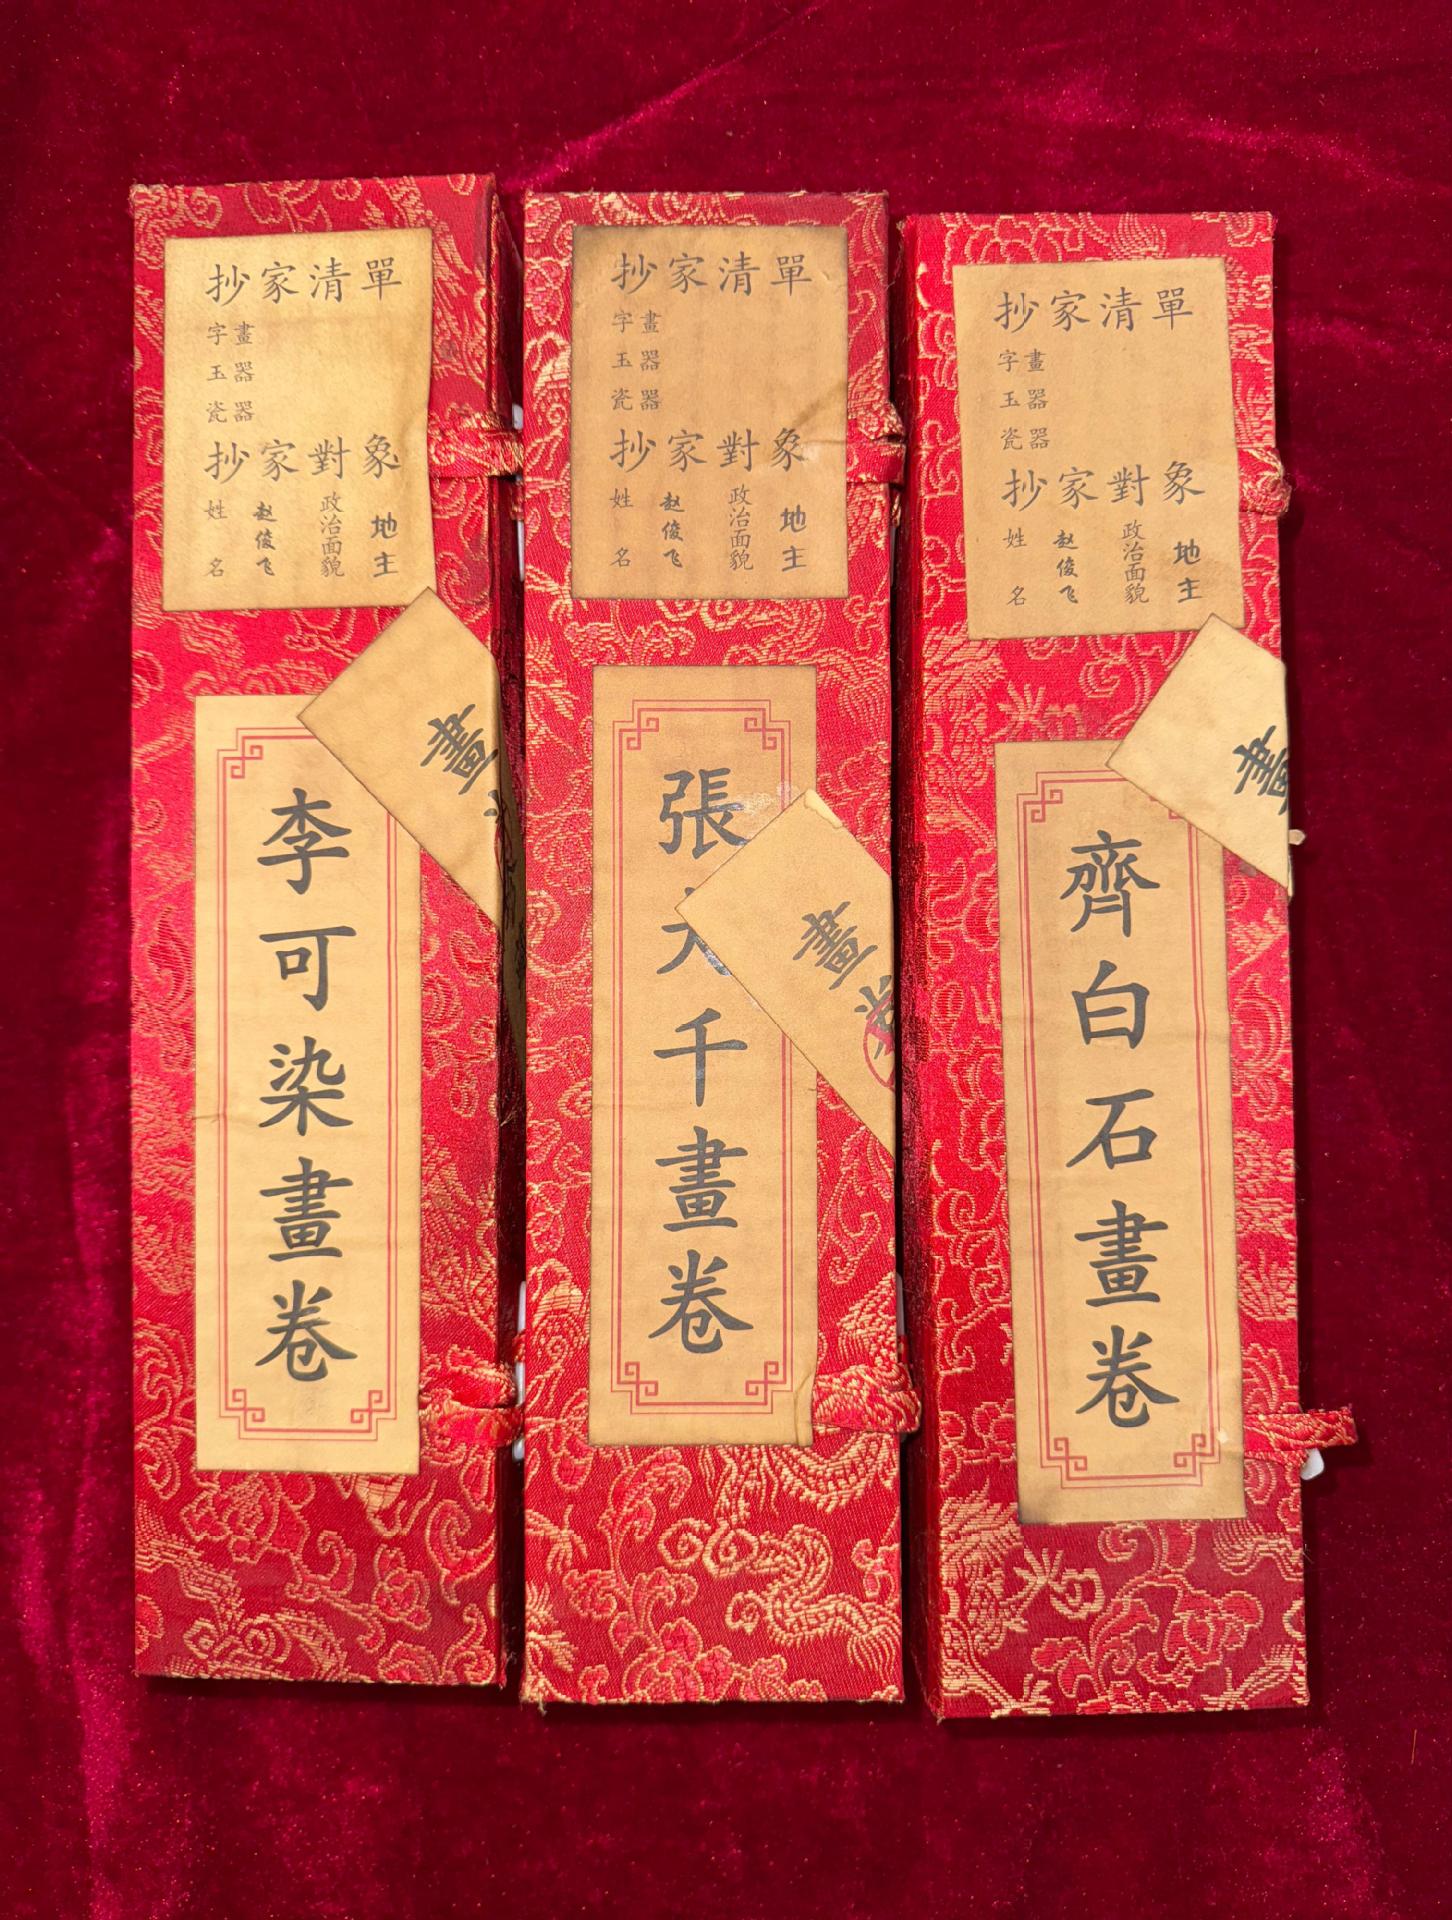 抄家清單
字畫
玉器
瓷器
抄家對象
姓名
赵俊飞
政治面貌
地主
畫
李可染畫卷
抄家清單
字畫
玉器
瓷器
抄家對象
姓名
赵俊飞
政治面貌
地主
張大千畫卷
畫
抄家清單
字畫
玉器
瓷器
抄家對象
姓名
赵俊飞
政治面貌
地主
畫
齊白石畫卷